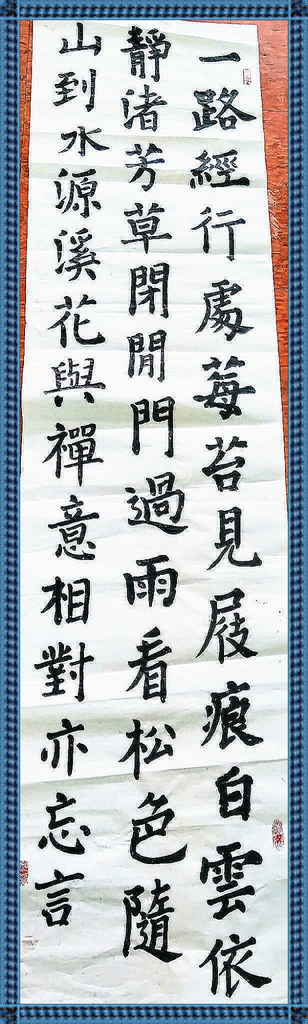 一路經行處莓苔見屐痕白雲依
靜渚芳草閉閒門過雨看松色隨
山到水源溪花與禪意相對亦忘言